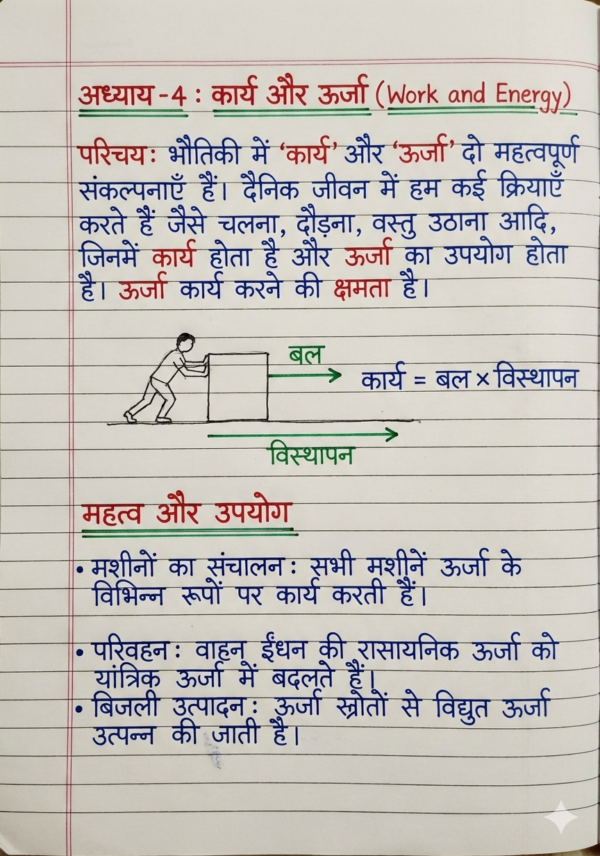 अध्याय-4 : कार्य और ऊर्जा (Work and Energy)
परिचय: भौतिकी में ‘कार्य’ और ‘ऊर्जा’ दो महत्वपूर्ण
संकल्पनाएँ हैं। दैनिक जीवन में हम कई क्रियाएँ
करते हैं जैसे चलना, दौड़ना, वस्तु उठाना आदि,
जिनमें कार्य होता है और ऊर्जा का उपयोग होता
है। ऊर्जा कार्य करने की क्षमता है।
बल
कार्य = बल × विस्थापन
विस्थापन
महत्व और उपयोग
• मशीनों का संचालन: सभी मशीनें ऊर्जा के
विभिन्न रूपों पर कार्य करती हैं।
• परिवहन: वाहन ईंधन की रासायनिक ऊर्जा को
यांत्रिक ऊर्जा में बदलते हैं।
• बिजली उत्पादन: ऊर्जा स्रोतों से विद्युत ऊर्जा
उत्पन्न की जाती है।